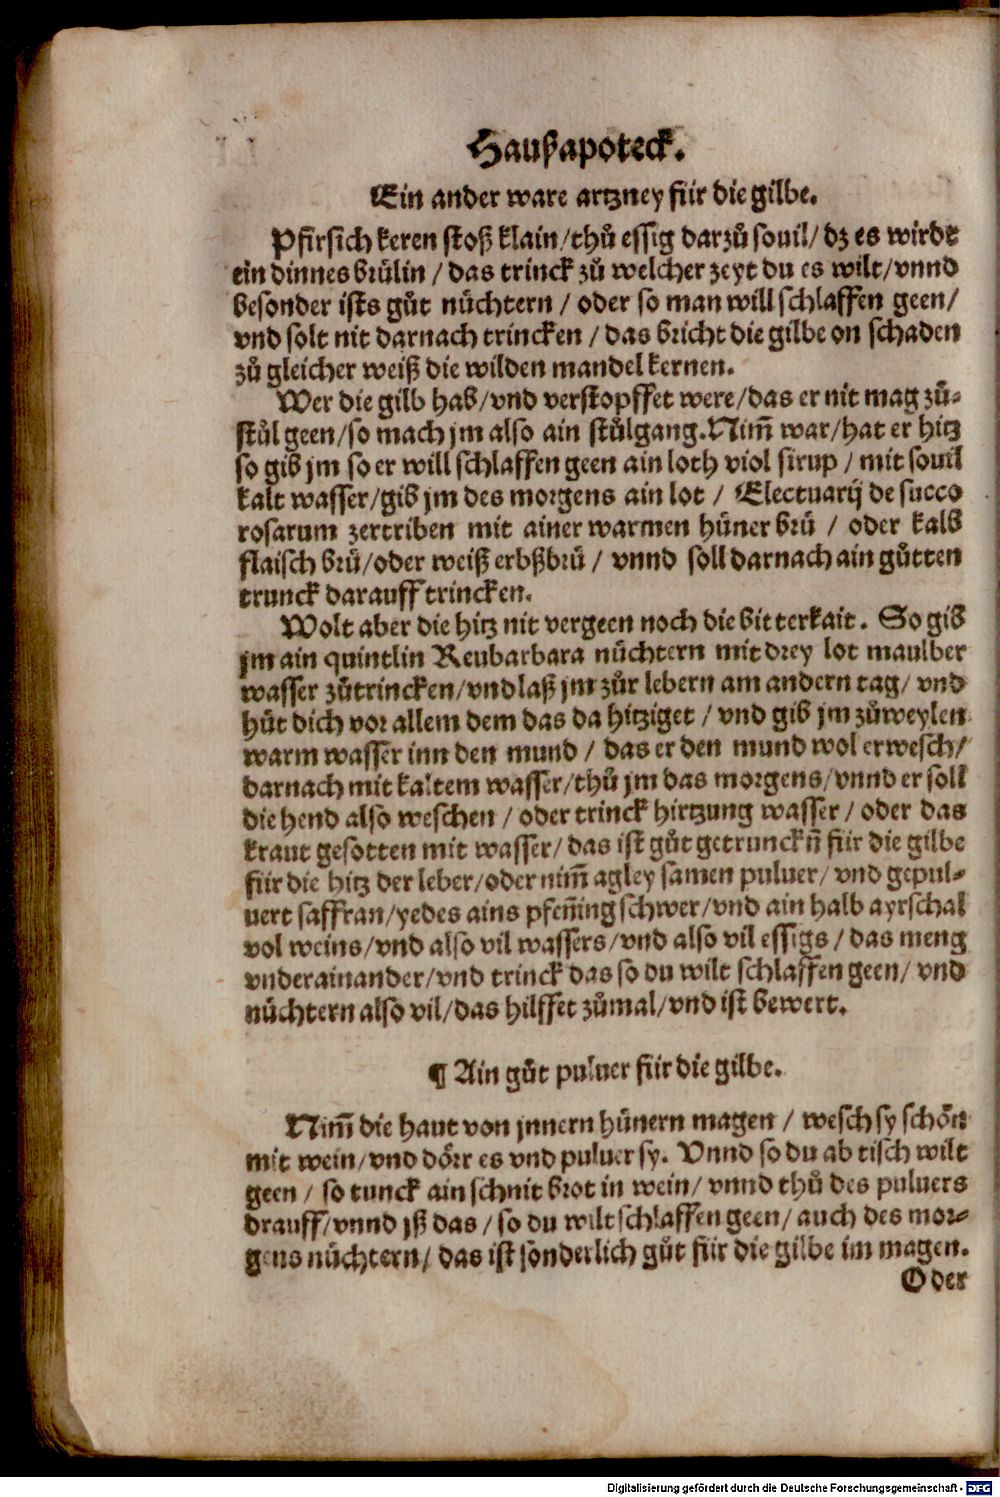 Haußapoteck.
Ein ander ware artzney für die gilbe.
Pfirsich keren stoß klain/thů essig darzů souil/dz es wirdt
ein dinnes brülin / das trinck zů welcher zeyt du es wilt/vnnd
besonder ists gůt nüchtern / oder so man will schlaffen geen/
vnd solt nit darnach trincken / das bricht die gilbe on schaden
zů gleicher weiß die wilden mandel kernen.
Wer die gilb hab/vnd verstopffet were/das er nit mag zů-
stůl geen/so mach jm also ain stůlgang. Nim̃ war/hat er hitz
so gib jm so er will schlaffen geen ain loth viol sirup / mit souil
kalt wasser/gib jm des morgens ain lot / Electuarij de succo
rosarum zertriben mit ainer warmen hüner brü / oder kalb
flaisch brü/oder weiß erbßbrü / vnnd soll darnach ain gůtten
trunck darauff trincken.
Wolt aber die hitz nit vergeen noch die bitterkait. So gib
jm ain quintlin Reubarbara nüchtern mit drey lot maulber
wasser zůtrincken/vnd laß jm zůr lebern am andern tag/ vnd
hüt dich vor allem dem das da hitziget / vnd gib jm zůweylen
warm wasser inn den mund / das er den mund wol erwesch/
darnach mit kaltem wasser/thů jm das morgens/vnnd er soll
die hend also weschen / oder trinck hirtzung wasser / oder das
kraut gesotten mit wasser/ das ist gůt getrunckñ für die gilbe
für die hitz der leber/oder nim̃ agley samen puluer/ vnd gepul-
uert saffran/yedes ains pfen̄ing schwer/vnd ain halb ayrschal
vol weins/vnd also vil wassers/vnd also vil essigs / das meng
vnderainander/vnd trinck das so du wilt schlaffen geen/ vnd
nüchtern also vil/das hilffet zůmal/vnd ist bewert.
¶ Ain gůt puluer für die gilbe.
Nim̃ die haut von jnnern hünern magen / wesch sy schön
mit wein/vnd dörr es vnd puluer sy. Vnnd so du ab tisch wilt
geen / so tunck ain schnit brot in wein/ vnnd thů des puluers
drauff/vnnd jß das / so du wilt schlaffen geen/ auch des mor-
gens nüchtern/ das ist sonderlich gůt für die gilbe im magen.
Oder
Digitalisierung gefördert durch die Deutsche Forschungsgemeinschaft - DFG